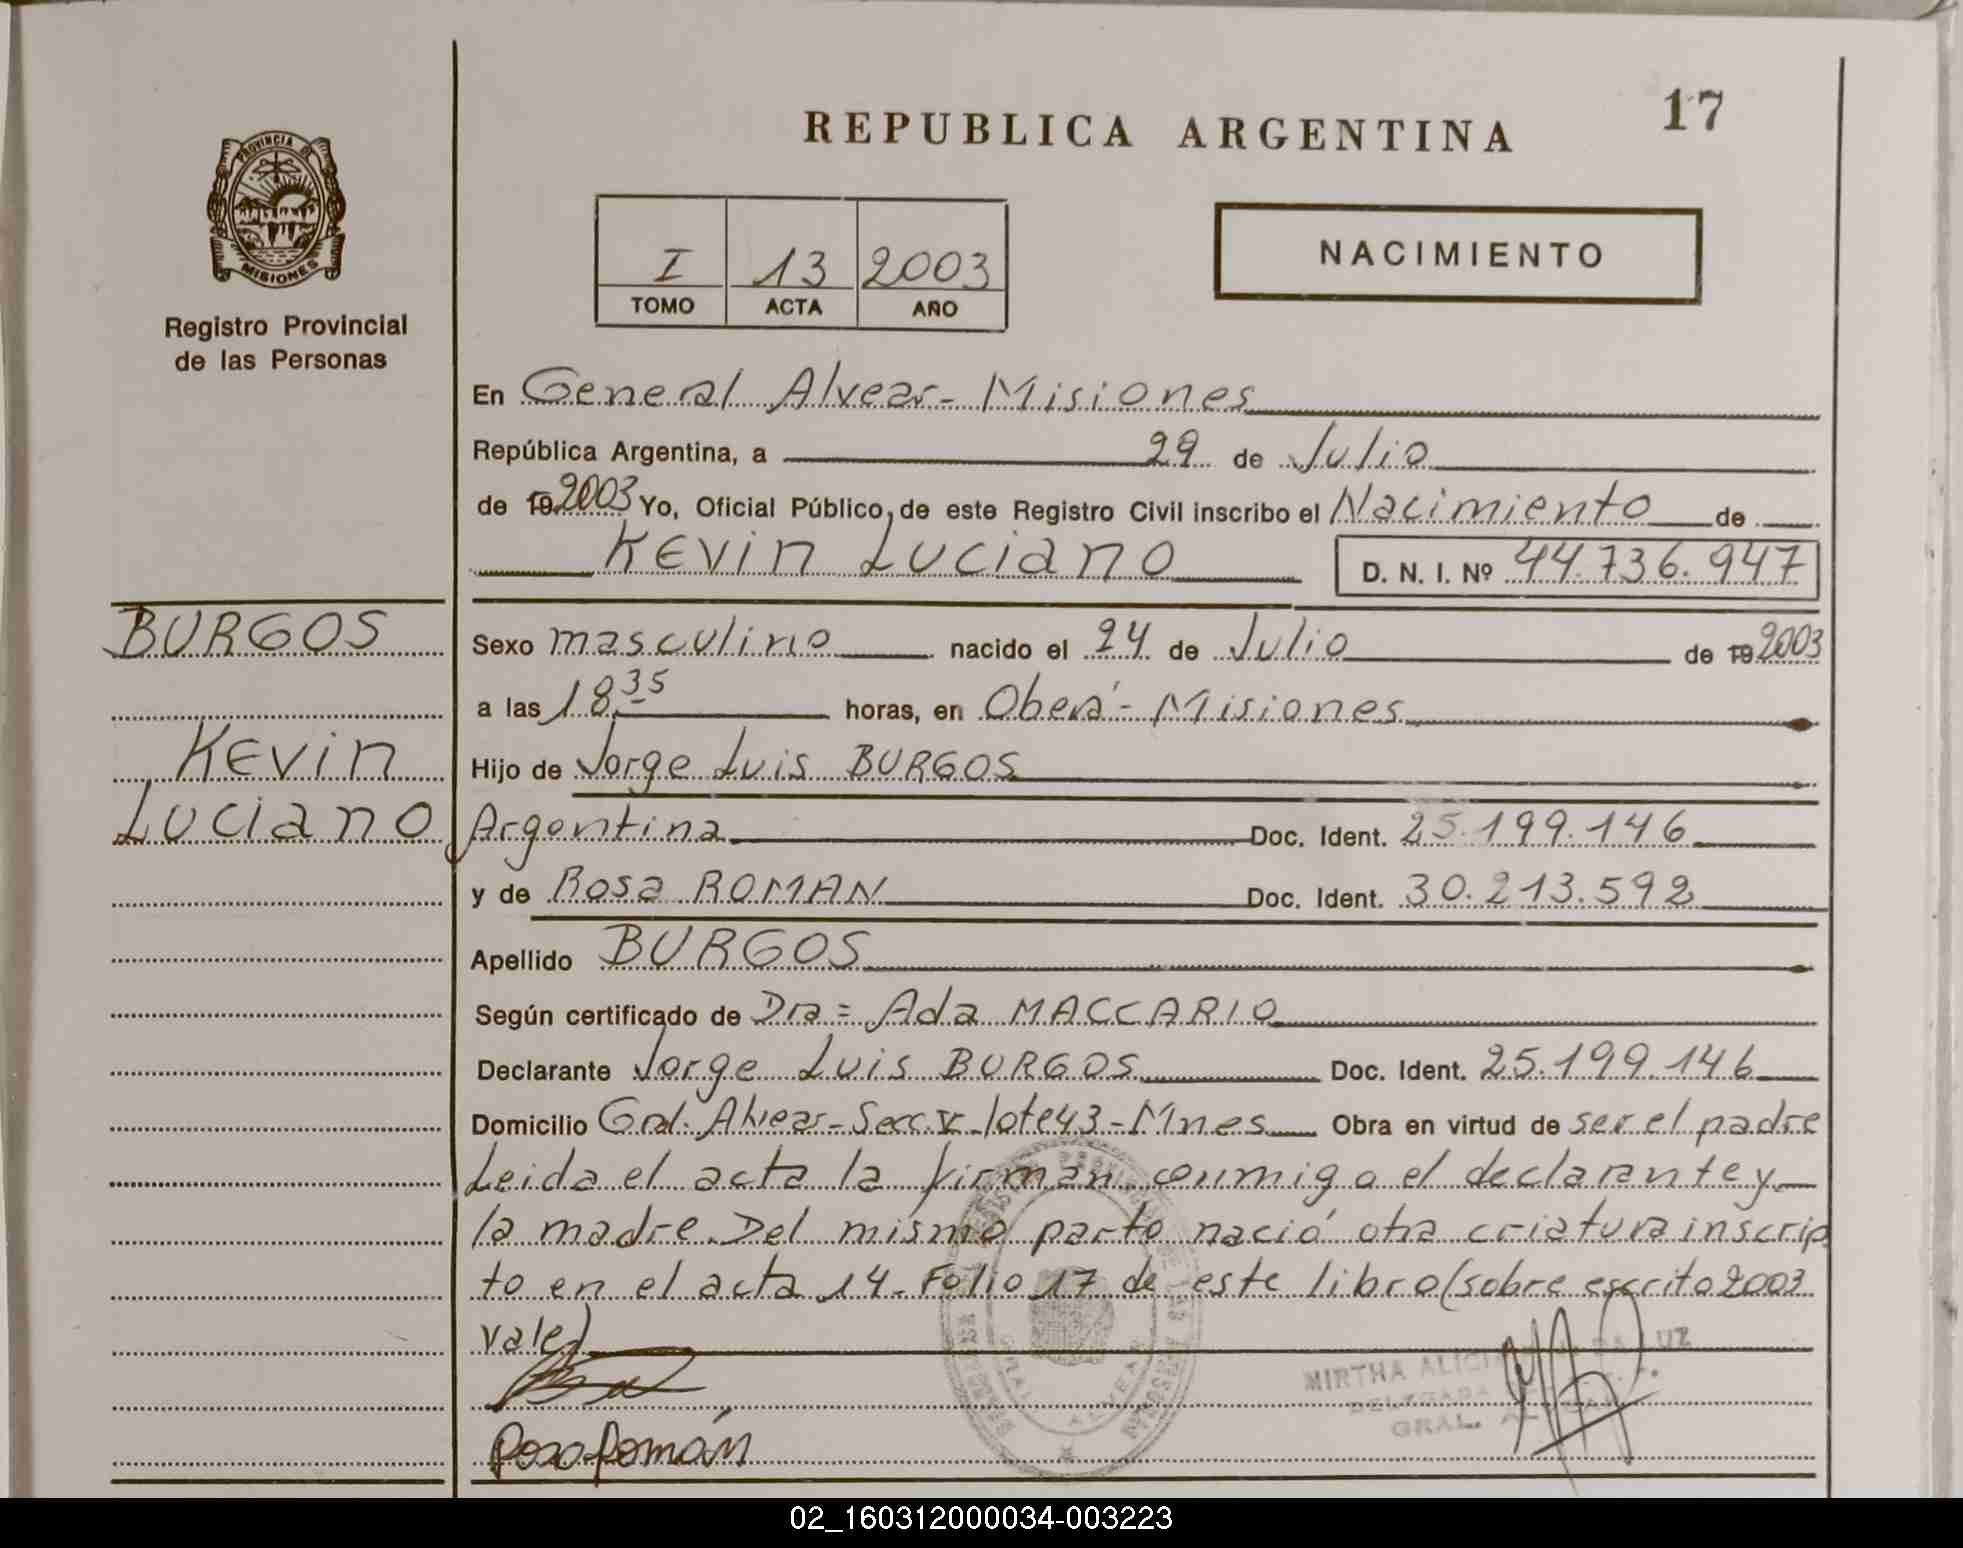 REPUBLICA ARGENTINA
17
PROVINCIA DE
MISIONES
Registro Provincial
de las Personas
I 13 2003
TOMO ACTA AÑO
NACIMIENTO
En General Alvear - Misiones
República Argentina, a 29 de Julio
de 19 2003 Yo, Oficial Público, de este Registro Civil inscribo el Nacimiento de
Kevin Luciano D. N. I. Nº 44.736.947
BURGOS
Kevin
Luciano
Sexo masculino nacido el 24 de Julio de 19 2003
a las 18.35 horas, en Oberá - Misiones
Hijo de Jorge Luis BURGOS
Argentina Doc. Ident. 25.199.146
y de Rosa ROMAN Doc. Ident. 30.213.592
Apellido BURGOS
Según certificado de Dra = Ada MACCARIO
Declarante Jorge Luis BURGOS Doc. Ident. 25.199.146
Domicilio Gral. Alvear - Secc. V lote 43 - Mnes Obra en virtud de ser el padre
Leida el acta la firman conmigo el declarante y
la madre. Del mismo parto nació otra criatura inscrip
to en el acta 14 - Folio 17 de este libro (sobre escrito 2003
vale)
MIRTHA ALICIA DA LUZ
DELEGADA
GRAL. ALVEAR
Rosa Román
02_160312000034-003223